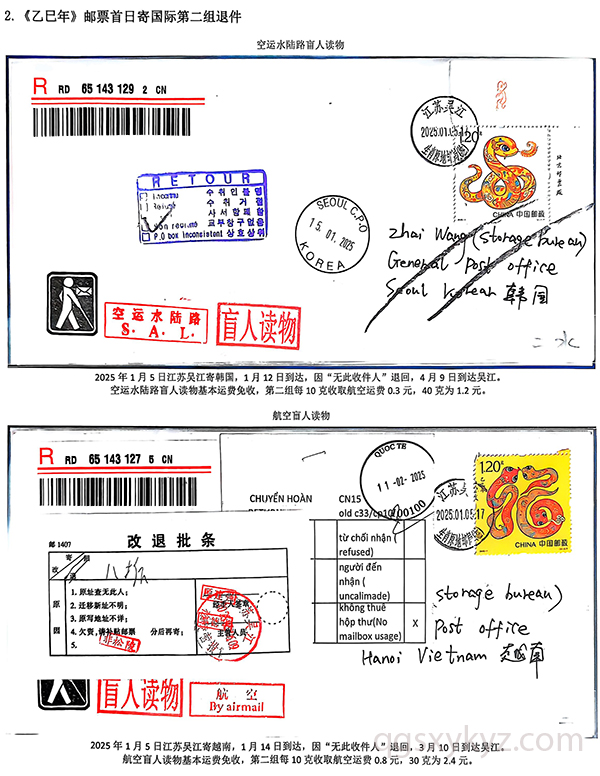 2.《乙巳年》邮票首日寄国际第二组退件
空运水陆路盲人读物
R RD 65 143 129 2 CN
江苏吴江
2025.01.05.17
1.20
北京邮票厂
CHINA 中国邮政
RETOUR
Inconnu 수취인불명
Refusé 수취거절
사서함폐함
Non réclamé 교부창구없음
P.O box inconsistent 상호상위
SEOUL C.P.O
15.01.2025
KOREA
Zhai Wang (storage bureau)
General Post office
Seoul Korean 韩国
空运水陆路
S. A. L.
盲人读物
二水
2025 年 1 月 5 日江苏吴江寄韩国，1 月 12 日到达，因“无此收件人”退回，4 月 9 日到达吴江。
空运水陆路盲人读物基本运费免收，第二组每 10 克收取航空运费 0.3 元，40 克为 1.2 元。
航空盲人读物
R RD 65 143 127 5 CN
QUOC TE
11-02-2025
100100
江苏吴江
2025.01.05.17
1.20
CHINA 中国邮政
CHUYỂN HOÀN
CN15
old c33/cp10
từ chối nhận (
refused)
người đến
nhận (
uncalimade)
không thuê
hộp thư(No
mailbox usage)
X
邮 1407
改退批条
寄
改
退
原
因
1. 原址查无此人;
2. 迁移新址不明;
3. 原写地址不详;
4. 欠资,请补贴邮票 分后再寄;
5.
主管人员
(storage bureau)
Post office
Hanoi Vietnam 越南
盲人读物
航 空
By airmail
2025 年 1 月 5 日江苏吴江寄越南，1 月 14 日到达，因“无此收件人”退回，3 月 10 日到达吴江。
航空盲人读物基本运费免收，第二组每 10 克收取航空运费 0.8 元，30 克为 2.4 元。